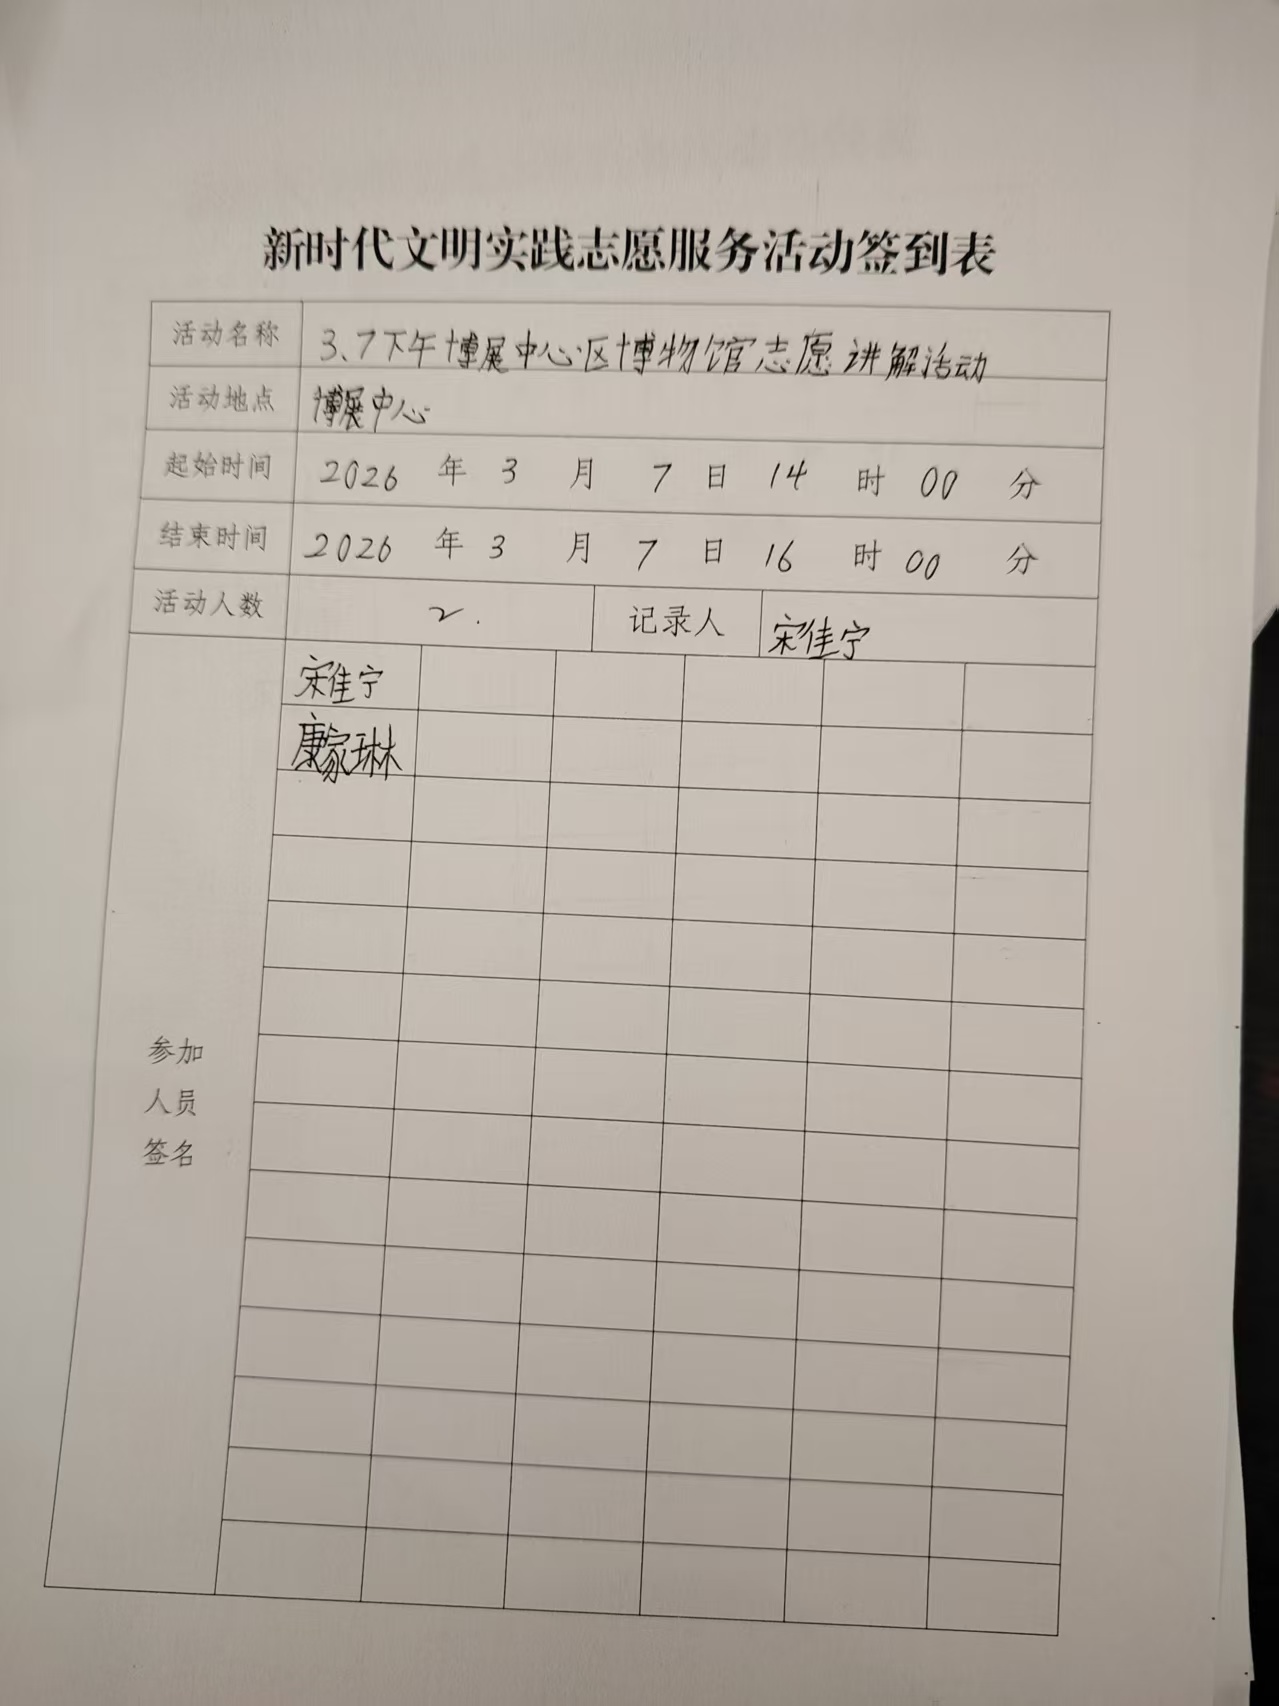 新时代文明实践志愿服务活动签到表
活动名称 3.7下午博展中心区博物馆志愿讲解活动
活动地点 博展中心
起始时间 2026 年 3 月 7 日 14 时 00 分
结束时间 2026 年 3 月 7 日 16 时 00 分
活动人数 2. 记录人 宋佳宁
宋佳宁
康家琳
参加
人员
签名